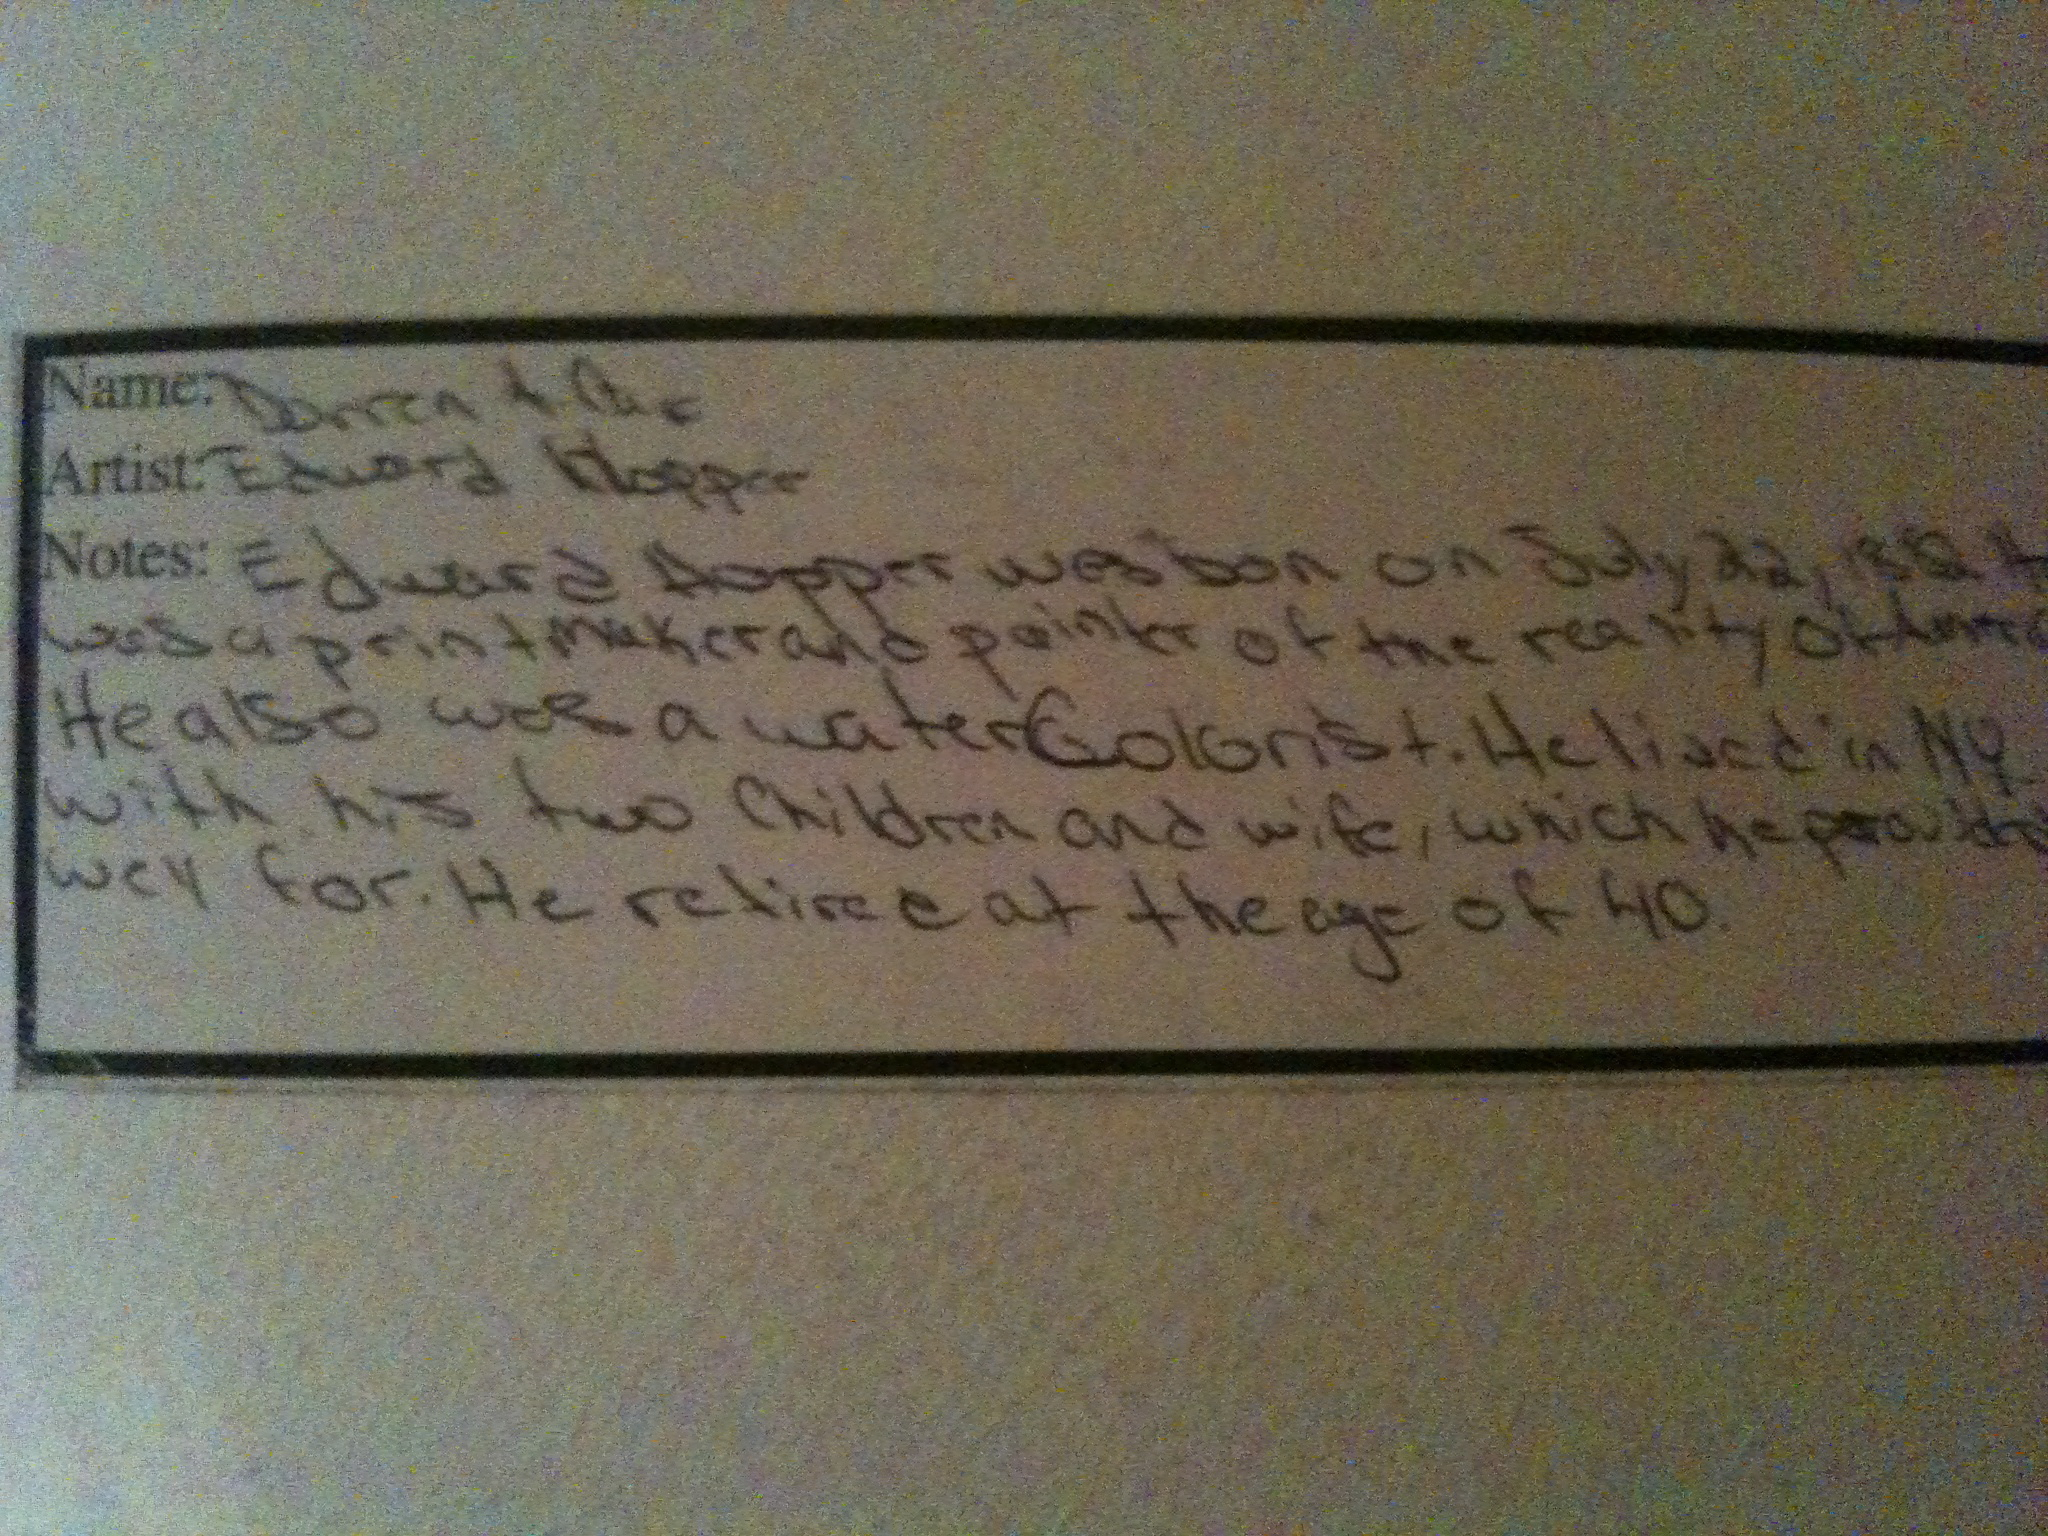 Name: Darren
Artist: Edward Hopper
Notes: Edward Hopper was born on July 22, 1882
was a printmaker and painter of the reality of
He also was a waterColorist. He lived in NY
with his two Children and wife, which he
well for. He retiree at the age of 40.